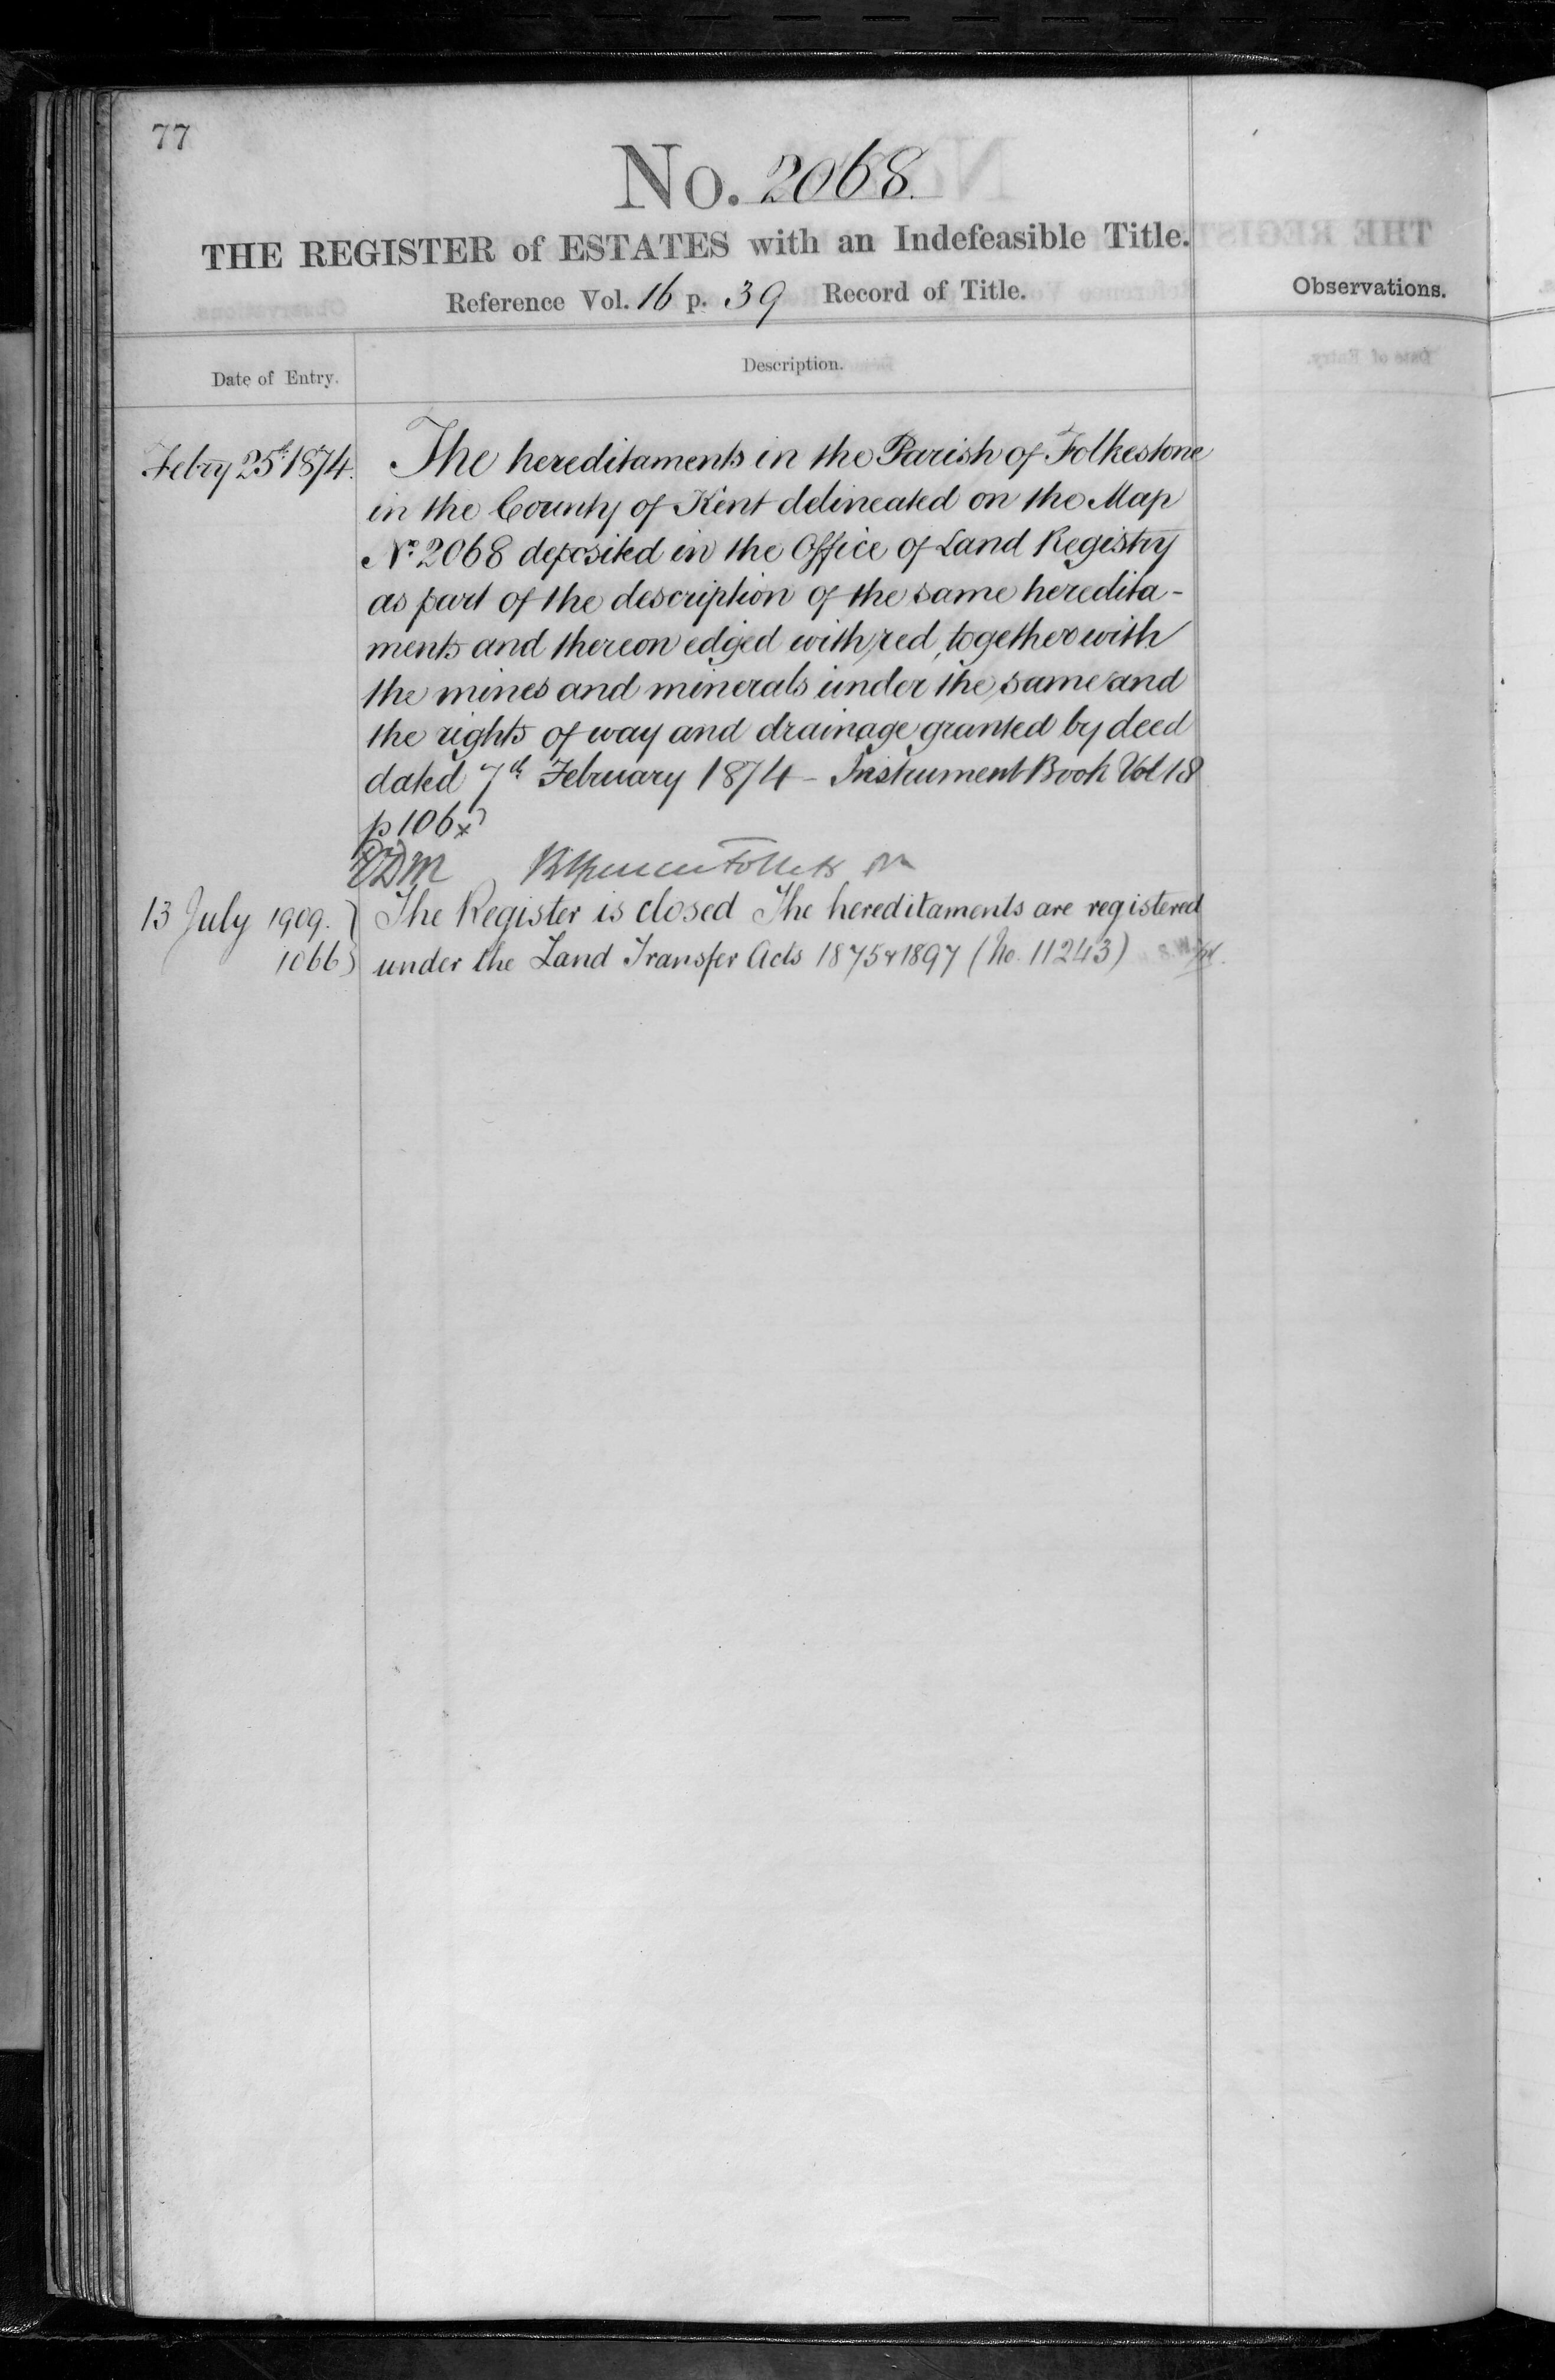 77
No. 2068.
THE REGISTER of ESTATES with an Indefeasible Title.
Reference Vol. 16 p. 39 Record of Title.
Observations.
Date of Entry.
Description.
Febry 25th 1874.
The hereditaments in the Parish of Folkestone
in the County of Kent delineated on the Map
No. 2068 deposited in the Office of Land Registry
as part of the description of the same heredita-
ments and thereon edged with red, together with
the mines and minerals under the same and
the rights of way and drainage granted by deed
dated 7th February 1874 - Instrument Book Vol 18
p 106
13 July 1909. } The Register is closed The hereditaments are registered
1066 } under the Land Transfer Acts 1875 & 1897 (No. 11243)